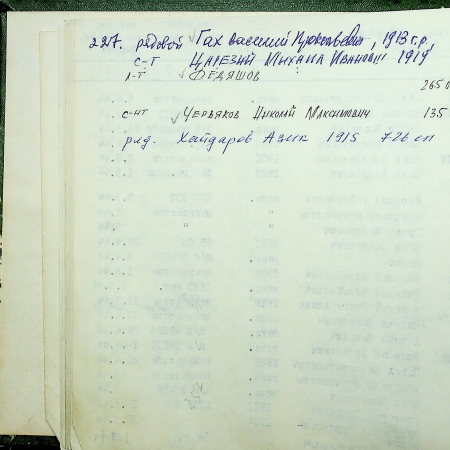 227. рядовой Гах Василий Прокофьевич, 1913 г.р.,
с-т Царезий Михаил Иванович 1914
л-т Федяшов
2650
с-нт Червяков Николай Максимович 135
ряд. Хайдаров Азик 1915 726 сп